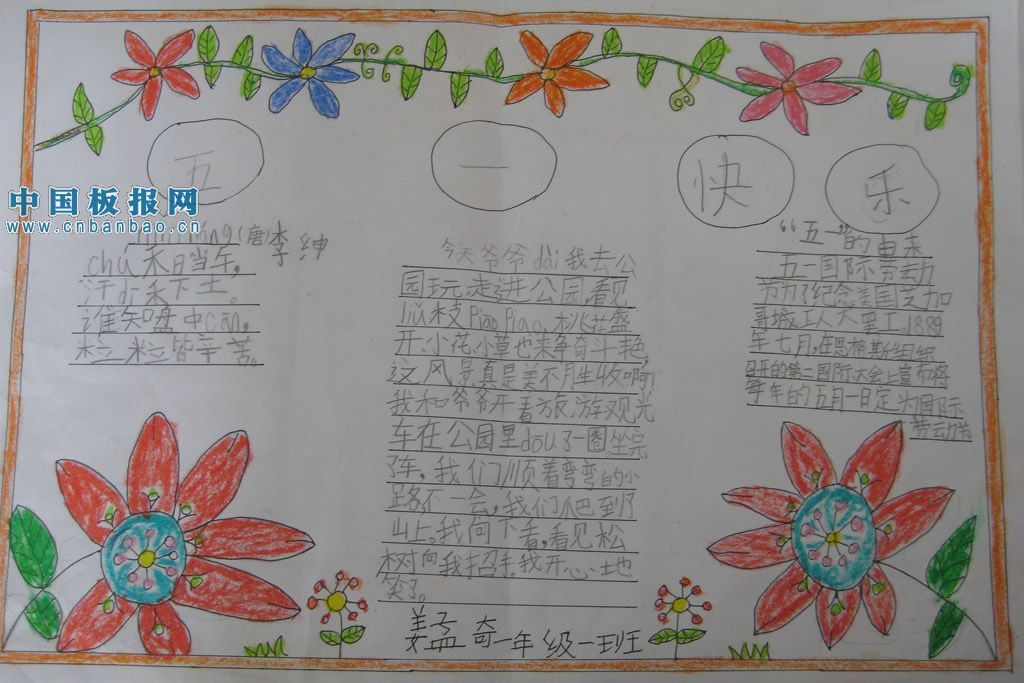 五
一
快
乐
中国板报网
www.cnbanbao.cn
(唐)李绅
chu禾日当午,
汗di禾下土。
谁知盘中cān,
粒粒皆辛苦。
今天爷爷dài我去公
园玩,走进公园,看见
liǔ枝Piāo Piao,桃花盛
开,小花、小草也来争奇斗艳,
这风景真是美不月生收啊!
我和爷爷开着旅游观光
车在公园里dōu了一圈,坐完
了车。我们顺着弯弯的小
路,不一会,我们爬到了
山上。我向下看,看见松
树向我招手,我开心地
笑了。
姜孟奇一年级一班
“五一”的由来
五一国际劳动
节为了纪念美国芝加
哥城工人大罢工,1889
年七月,在恩格斯组织
召开的第二国际大会上宣布将
每年的五月一日定为国际
劳动节。